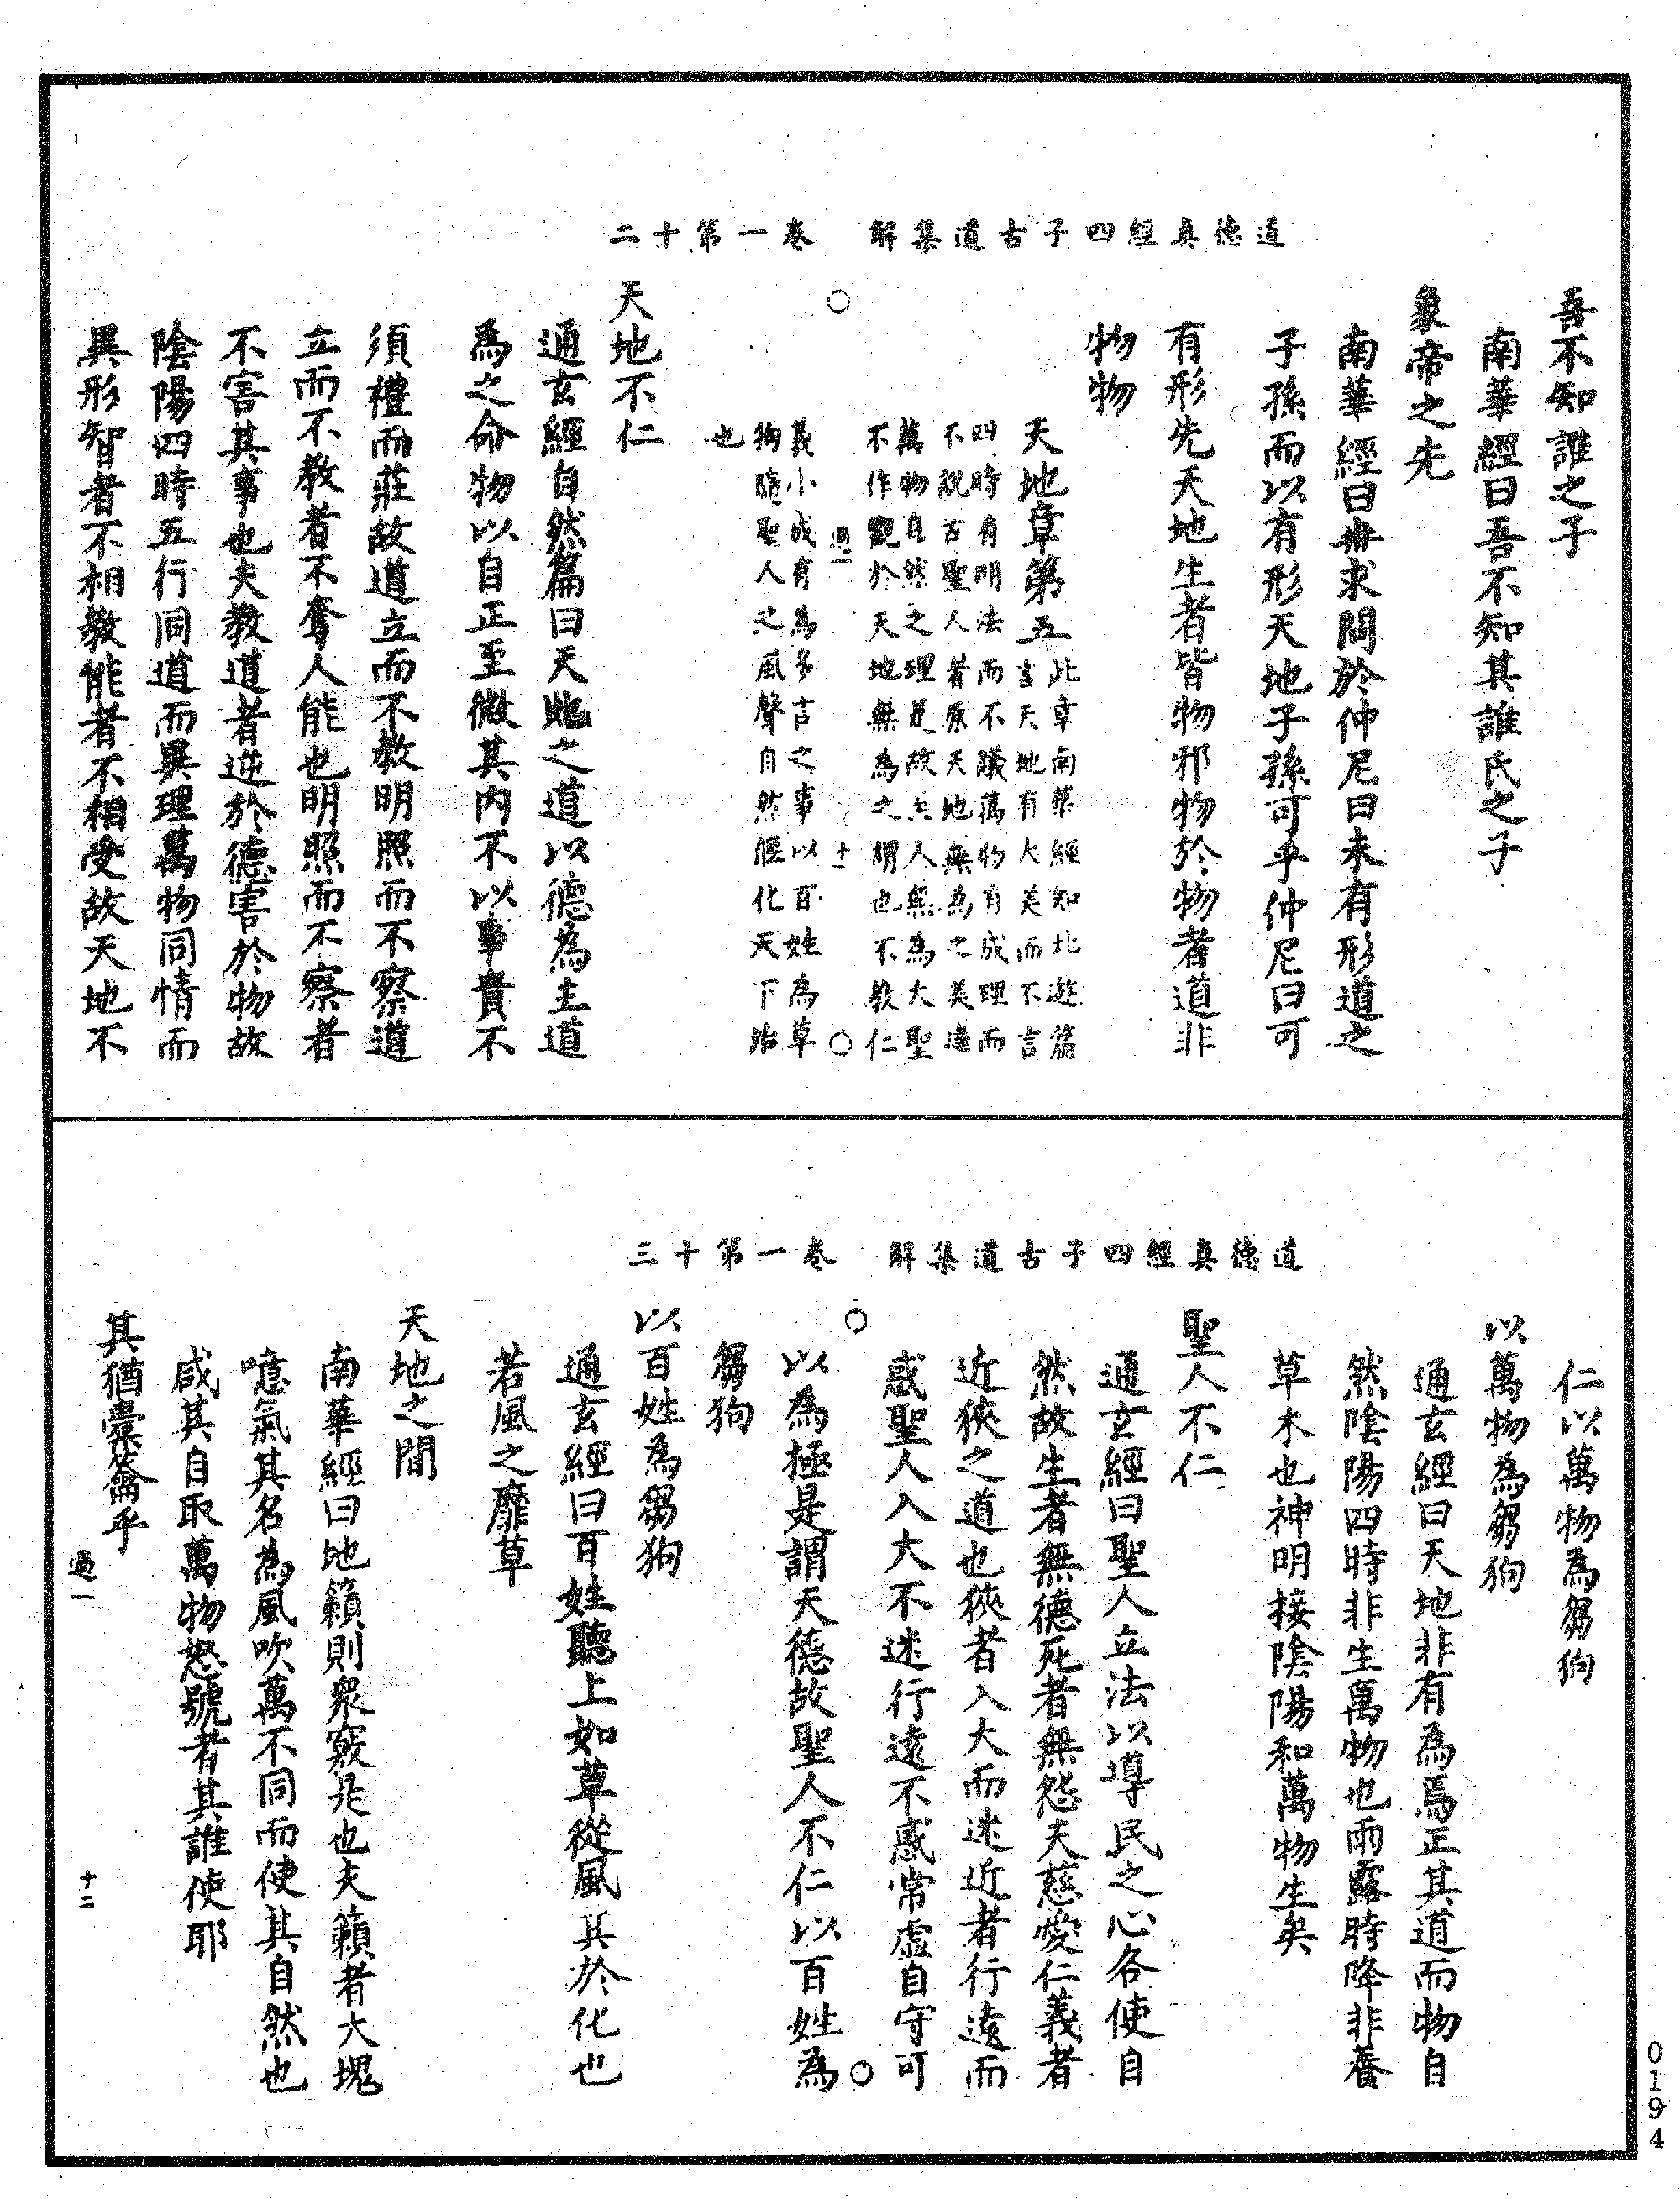 道德真經四子古道集解　卷一第十二
吾不知誰之子
南華經曰吾不知其誰氏之子
象帝之先
南華經曰冉求問於仲尼曰未有形道之
子孫而以有形天地子孫可乎仲尼曰可
有形先天地生者皆物邪物於物者道非
物物
天地章第五此章南華經知北遊篇
言天地有大美而不言
四時有明法而不議萬物有成理而
不說古聖人者原天地無為之美達
萬物自然之理是故至人無為大聖
不作觀於天地無為之謂也不教仁
十一
義小成有為多言之事以百姓為草
狗隨聖人之風聲自然偃化天下治
也
天地不仁
通玄經自然篇曰天地之道以德為主道
為之命物以自正至微其內不以事貴不
須禮而莊故道立而不教明照而不察道
立而不教者不奪人能也明照而不察者
不害其事也夫教道者逆於德害於物故
陰陽四時五行同道而異理萬物同情而
異形智者不相教能者不相受故天地不
道德真經四子古道集解　卷一第十三
仁以萬物為芻狗
以萬物為芻狗
通玄經曰天地非有為焉正其道而物自
然陰陽四時非生萬物也雨露時降非養
草木也神明接陰陽和萬物生矣
聖人不仁
通玄經曰聖人立法以導民之心各使自
然故生者無德死者無怨夫慈愛仁義者
近狹之道也狹者入大而迷近者行遠而
惑聖人入大不迷行遠不惑常虛自守可
以為極是謂天德故聖人不仁以百姓為
芻狗
以百姓為芻狗
通玄經曰百姓聽上如草從風其於化也
若風之靡草
天地之間
南華經曰地籟則衆竅是也夫籟者大塊
噫氣其名為風吹萬不同而使其自然也
咸其自取萬物怒號者其誰使耶
其猶橐籥乎
過一
十二
0194